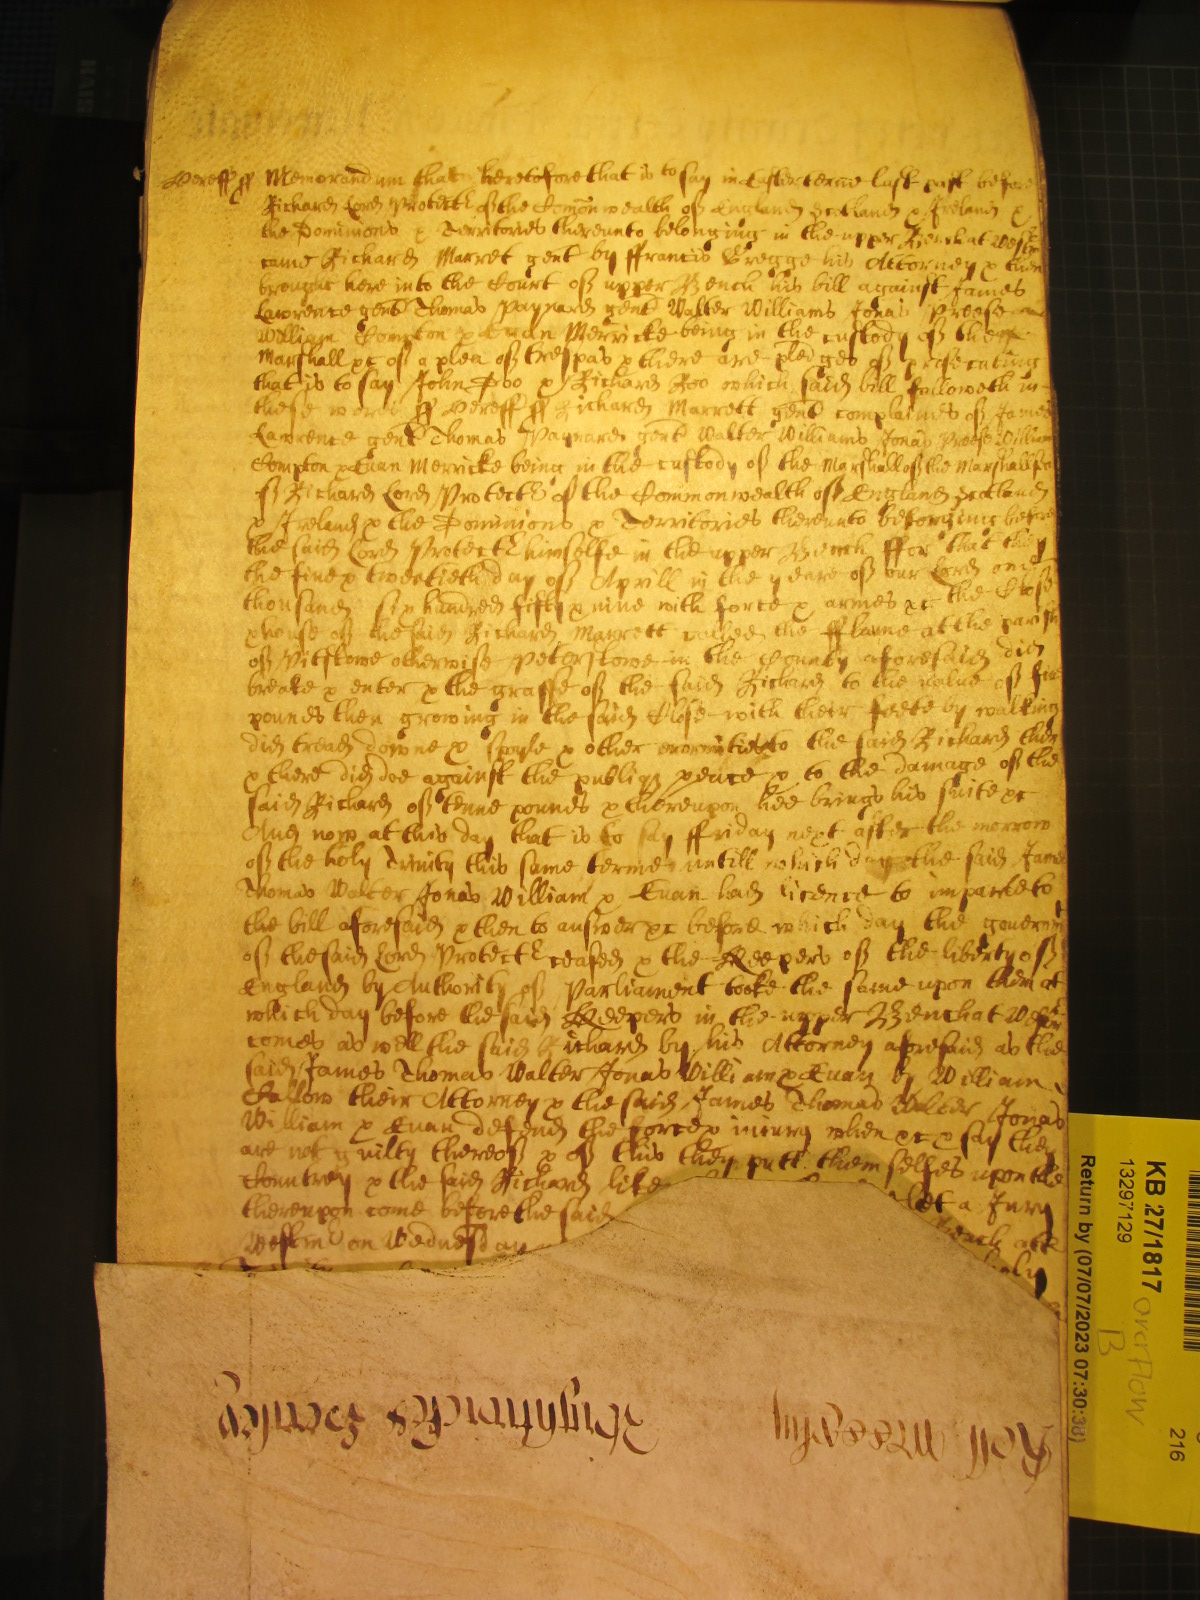 Hereff ss Memorandum that heretofore that is to say in Easter terme last past before
Richard Lord Protector of the Comonwealth of England Scotland & Ireland &
the Dominions & Territories thereunto belonging in the upper Bench at Westm
came Richard Marret gent by ffrancis Gregge his Attorney & then
brought here into the Court of upper Bench his bill against James
Lawrence gent Thomas Paynard gent Walter Williams Jonas Preese
William Compton & Euan Merricke being in the custody of the
Marshall &c of a plea of trespas & there are pledges of prosecuting
that is to say John Doo & Richard Roo which said bill followeth in
these words ss Hereff ss Richard Marrett gent complaines of James
Lawrence gent Thomas Paynard gent Walter Williams Jonas Preese William
Compton & Euan Merricke being in the custody of the Marshall of the Marshallsea
of Richard Lord Protector of the Commonwealth of England Scotland
& Ireland & the Dominions & Territories thereunto belonging before
the said Lord Protector himselfe in the upper Bench ffor that they
the five & twentieth day of Aprill in the yeare of our Lord one
thousand six hundred fifty & nine with force & armes &c the Close
& house of the said Richard Marrett called the fflame at the parish
of Pitstowe otherwise Peterstowe in the County aforesaid did
breake & enter & the grasse of the said Richard to the value of five
pounds then growing in the said Close with their feete by walking
did tread downe & spoyle & other enormities to the said Richard then
& there did doe against the publiq peace & to the damage of the
said Richard of tenne pounds & thereupon hee brings his suite &c
And now at this day that is to say ffriday next after the morrow
of the holy Trinity this same terme untill which day the said James
Thomas Walter Jonas William & Euan had licence to imparle to
the bill aforesaid & then to answer &c before which day the governmt
of the said Lord Protector ceased & the Keepers of the liberty of
England by Authority of Parliament tooke the same upon them at
which day before the said Keepers in the upper Bench at Westm
comes as well the said Richard by his Attorney aforesaid as the
said James Thomas Walter Jonas William & Euan by William
Fallow their Attorney & the said James Thomas Walter Jonas
William & Euan defend the force & iniury when &c & say they
are not guilty thereof & of this they putt them selfes upon the
Countrey & the said Richard like
thereupon come before the said let a Jury
Westm on Wednesday Bench att
holy
Roll
KB 27/1817
13297129
Return by (07/07/2023 07:30:38)
overflow
B
216